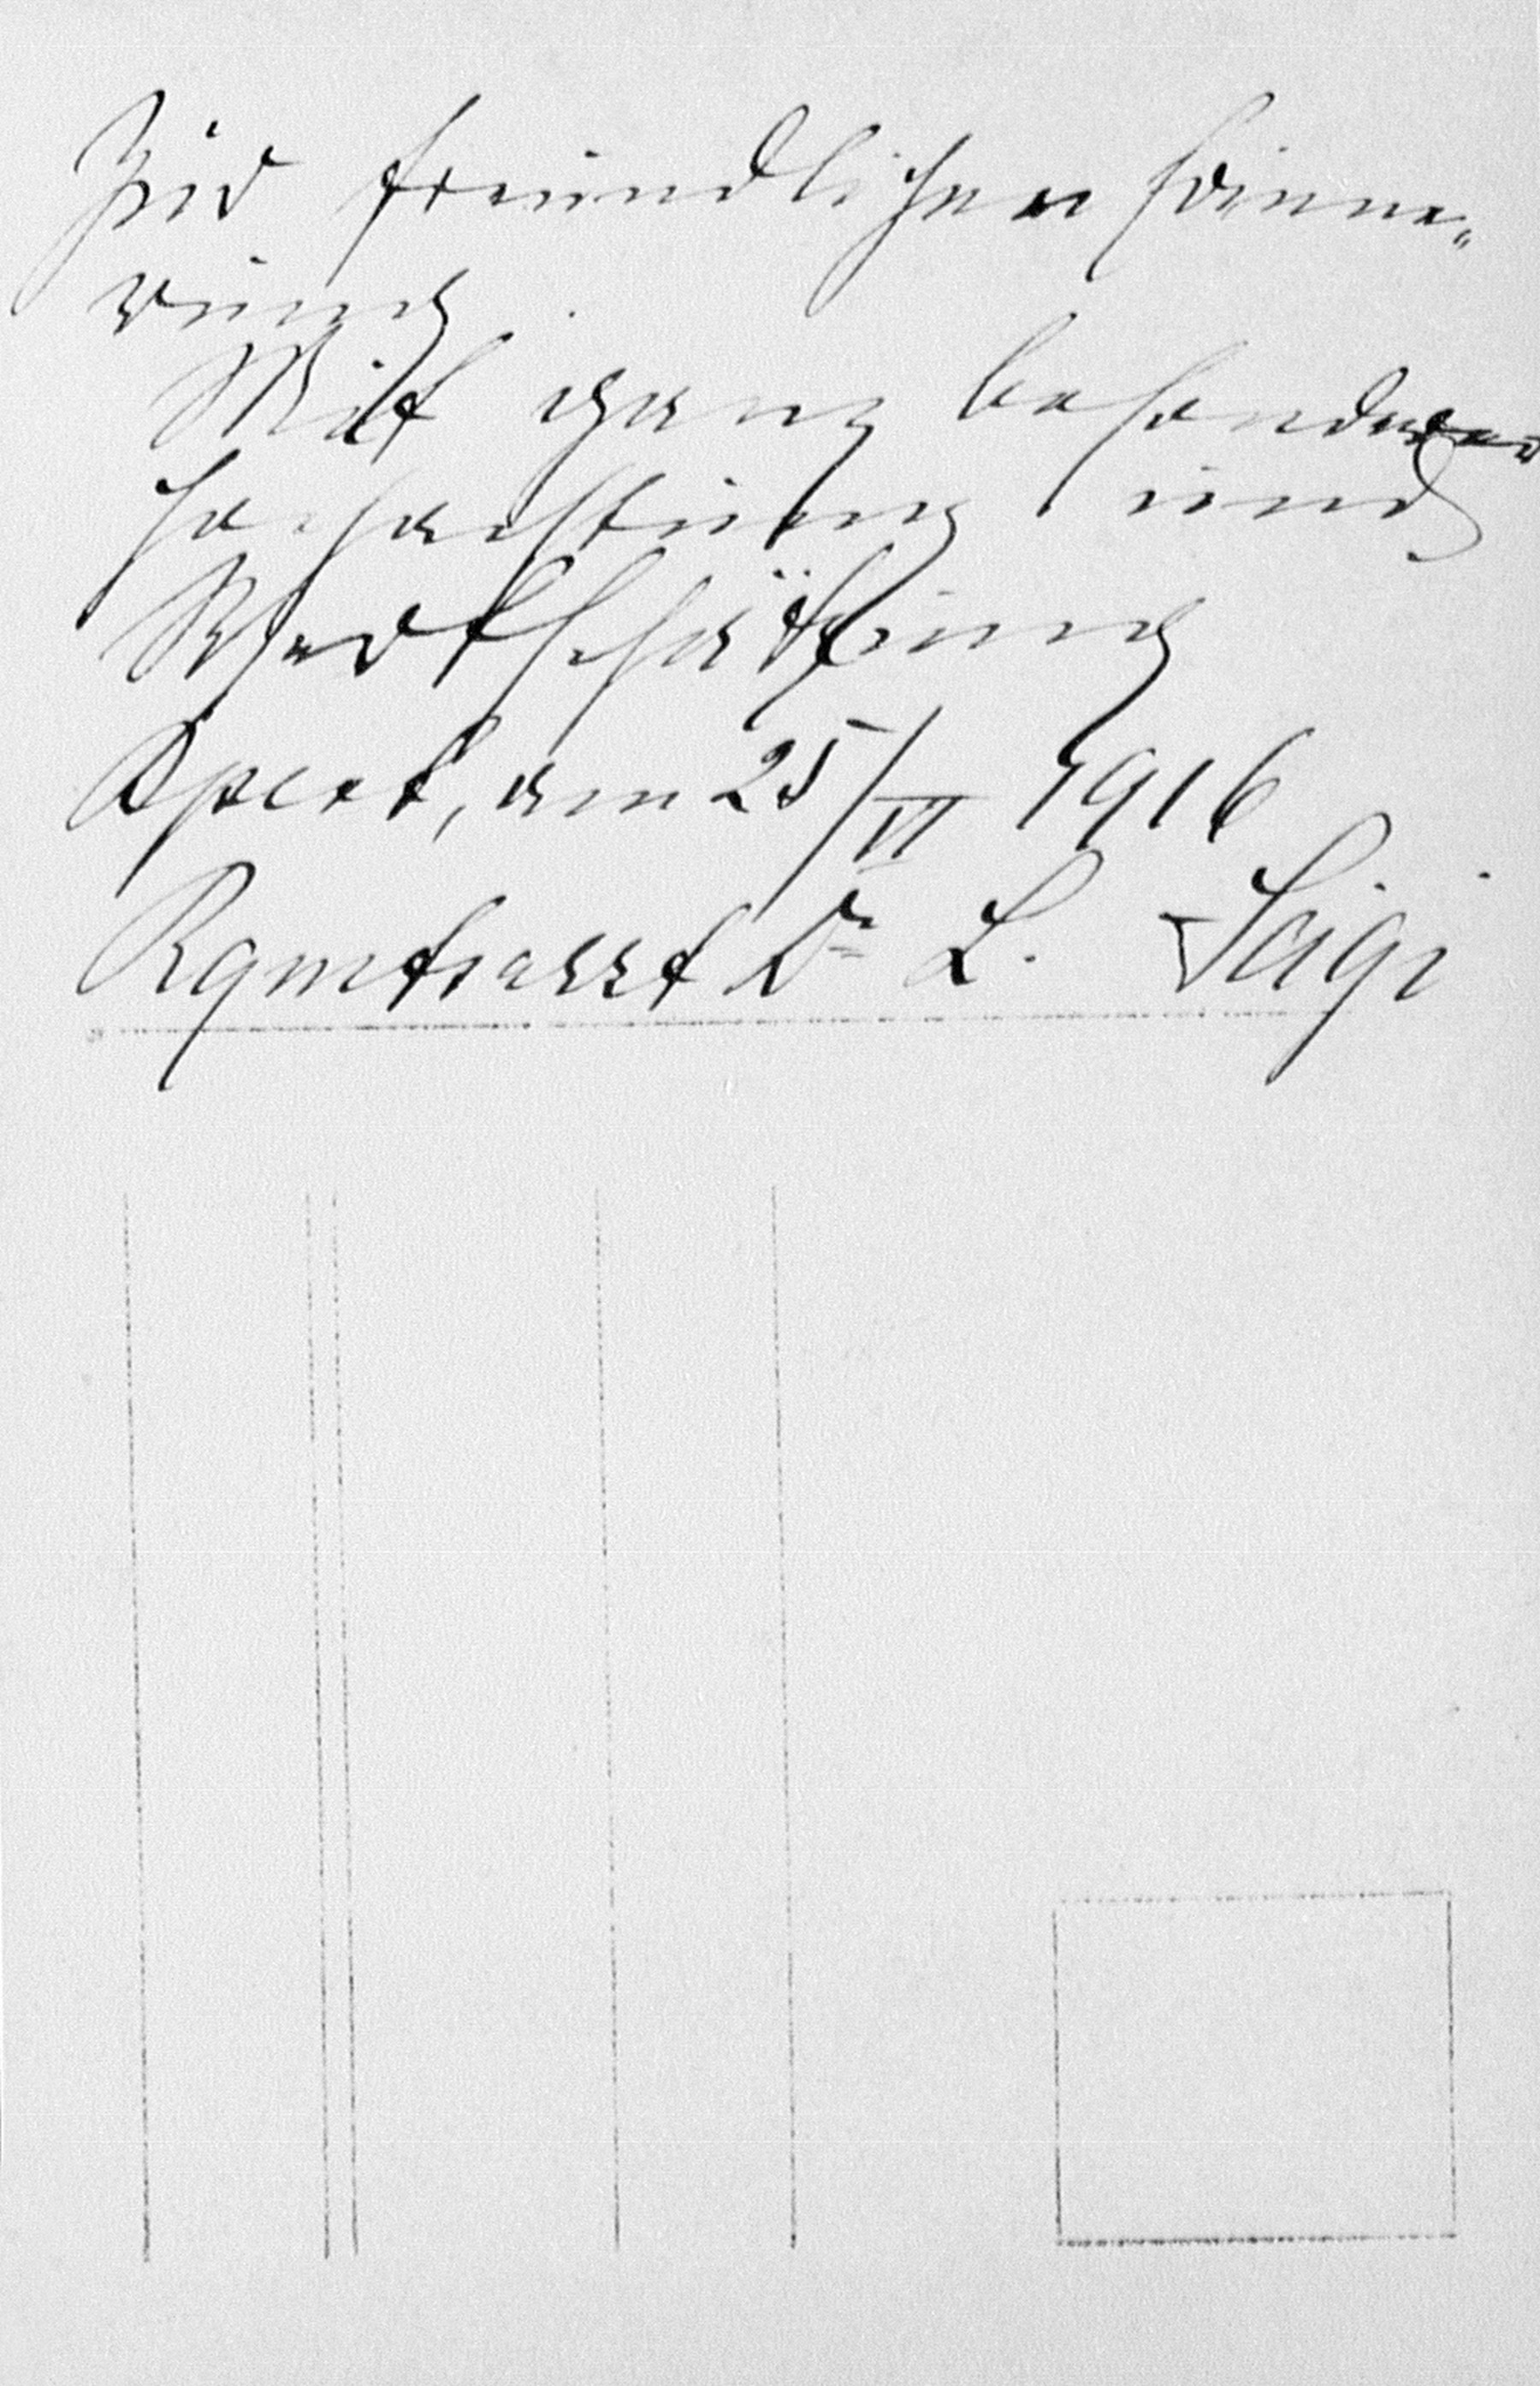 Zur freundlichen Erinne-
rung.
Mit ganz besonderer
Hochachtung und
Wertschätzung
am 25/VI 1916
Rgmtsarzt Dr L. Sági